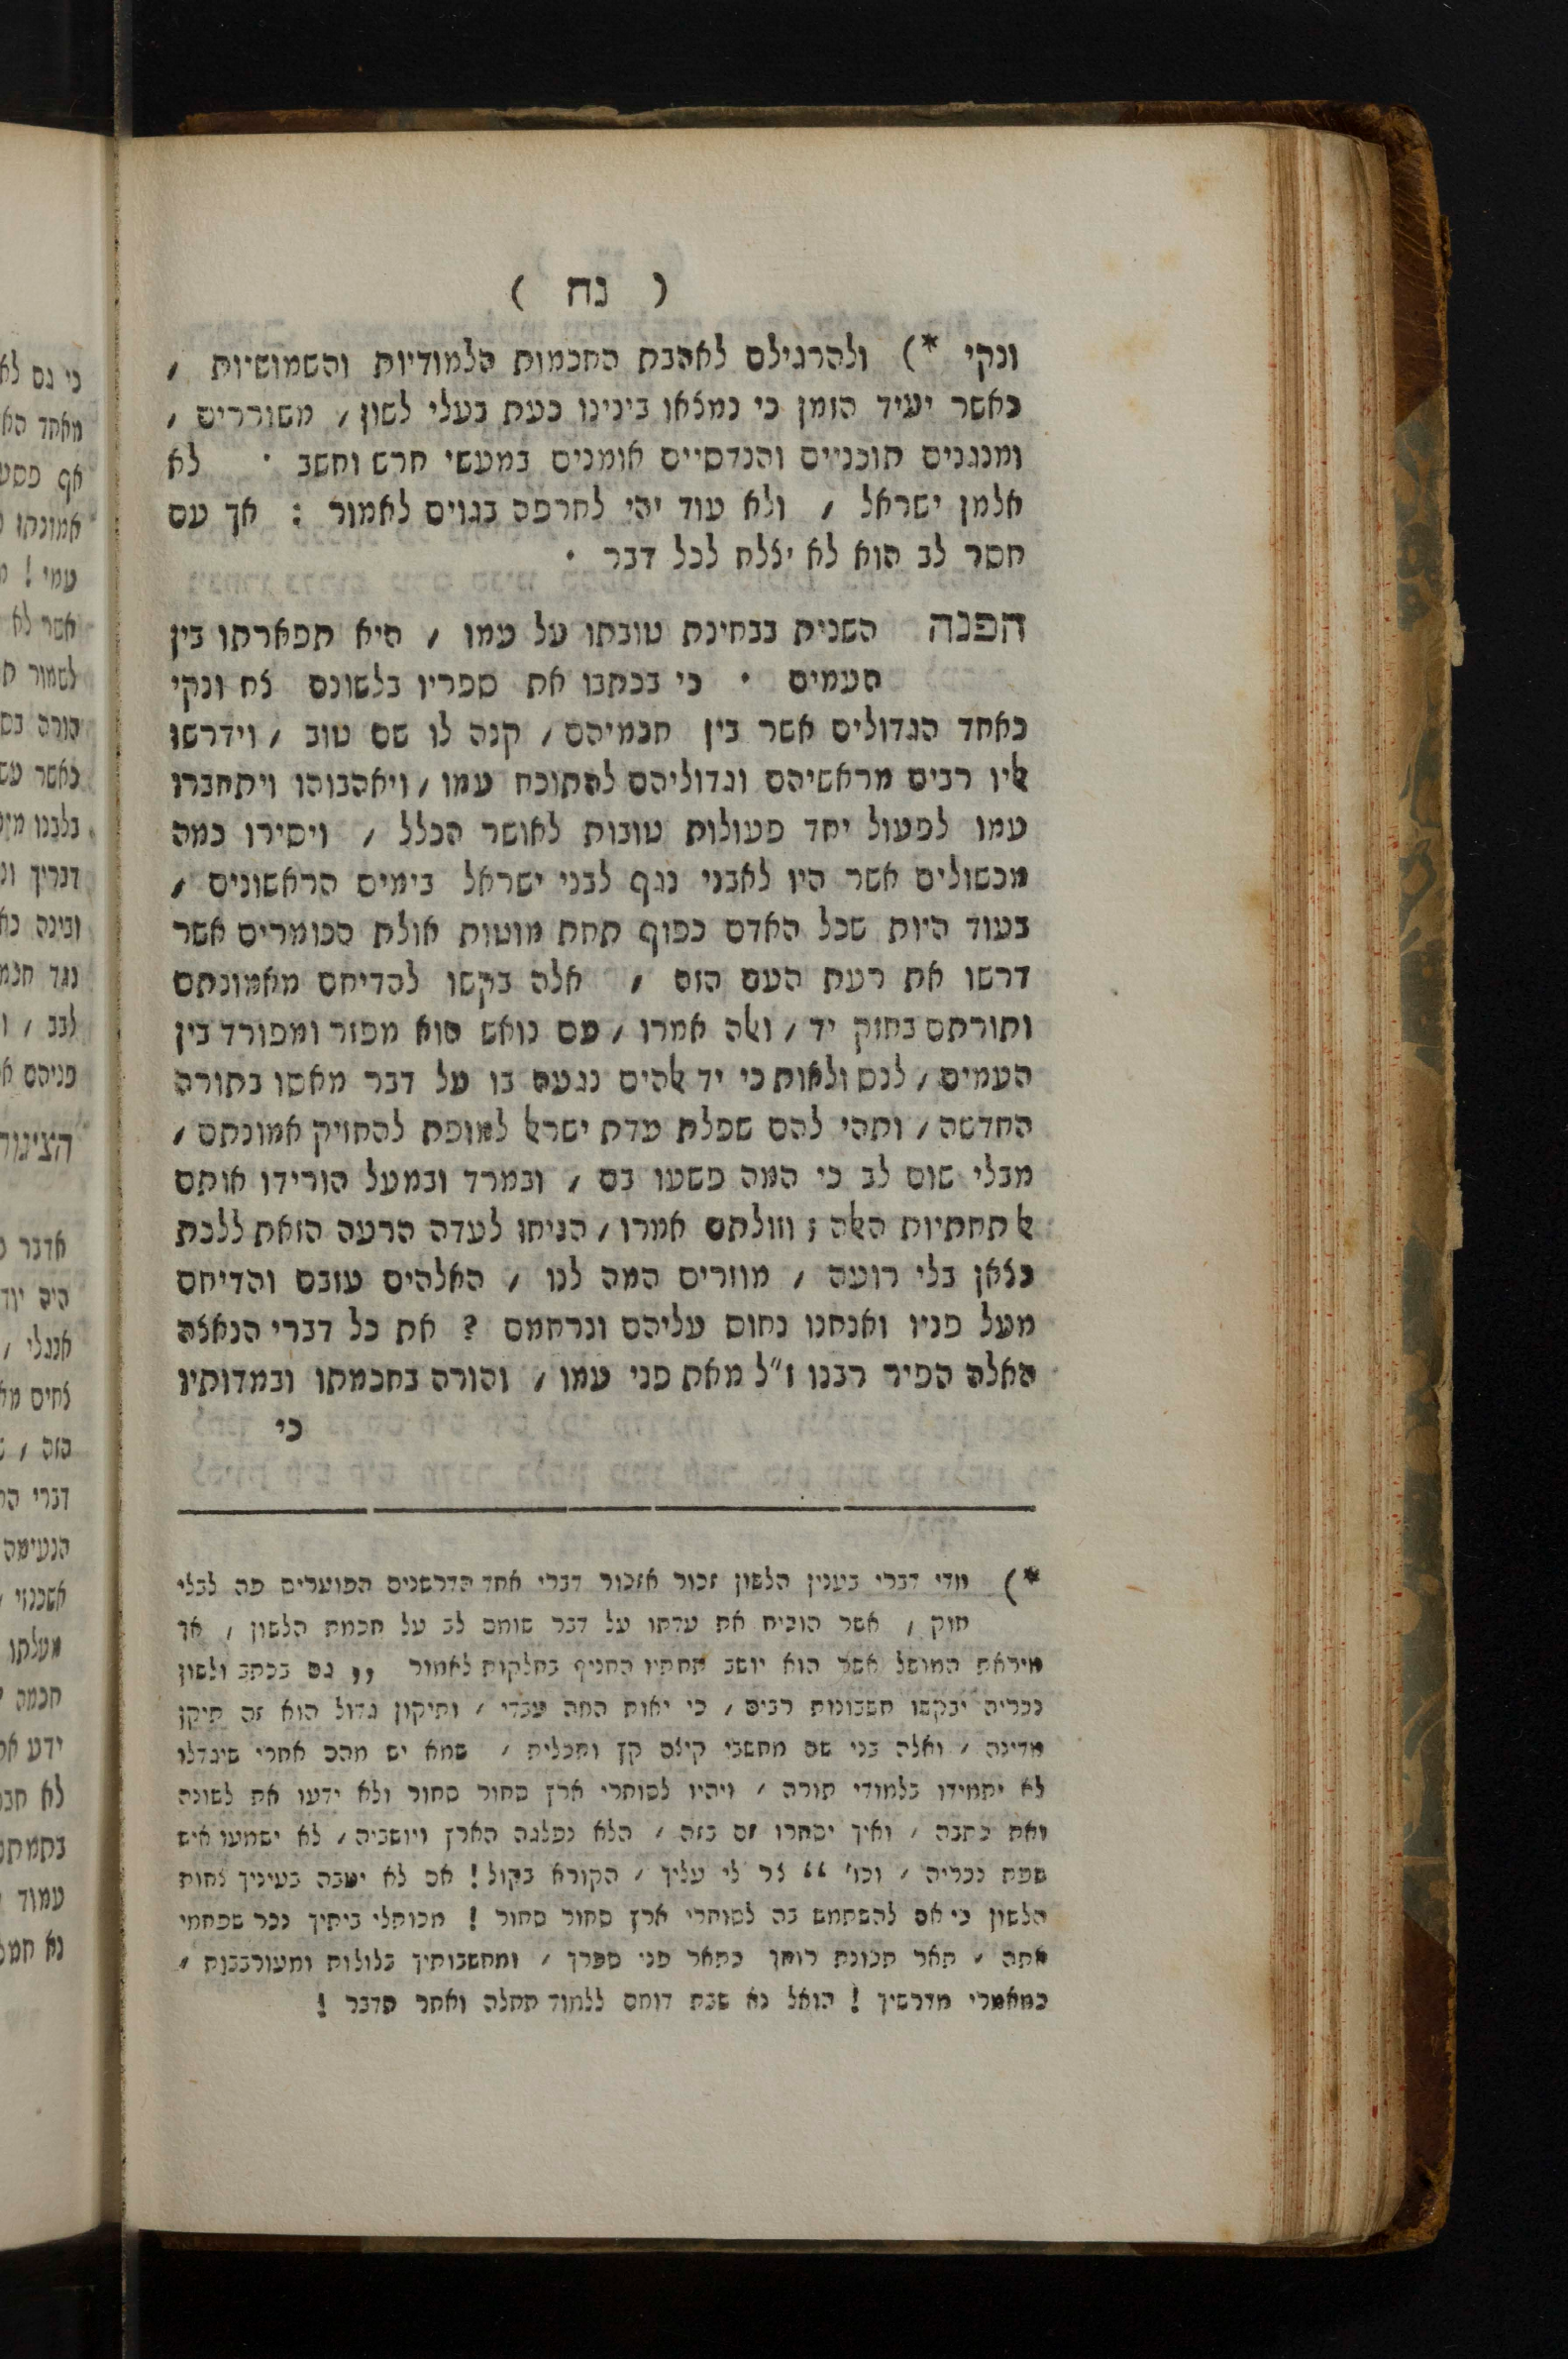 ( נח )
ונקי *) ולהרגילם לאהבת החכמות הלמודיות והשמושיות /
כאשר יעיד הזמן כי נמצאו בינינו כעת בעלי לשון / משוררים /
ומנגנים תוכניים והנדסיים אומנים במעשי חרש וחשב · לא
אלמן ישראל / ולא עוד יהי לחרפה בגוים לאמור : אך עם
חסר לב הוא לא יצלח לכל דבר ·
הפנה השנית בבחינת טובתו על עמו / היא תפארתו בין
העמים · כי בכתבו את ספריו בלשונם צח ונקי
כאחד הגדולים אשר בין חכמיהם / קנה לו שם טוב / וידרשו
אליו רבים מראשיהם וגדוליהם להתוכח עמו / ויאהבוהו ויתחברו
עמו לפעול יחד פעולות טובות לאושר הכלל / ויסירו כמה
מכשולים אשר היו לאבני נגף לבני ישראל בימים הראשונים /
בעוד היות שכל האדם כפוף תחת מוטות אולת הכומרים אשר
דרשו את רעת העם הזה / אלה בקשו להדיחם מאמונתם
ותורתם בחזק יד / ואלה אמרו / עם נואש הוא מפזר ומפורד בין
העמים / לנס ולאות כי יד אלהים נגעה בו על דבר מאסו בתורה
החדשה / ותהי להם שפלת עדת ישראל למופת להחזיק אמונתם /
מבלי שום לב כי המה פשעו בם / ובמרד ובמעל הורידו אותם
אל תחתיות האלה ; וזולתם אמרו / הניחו לעדה הרעה הזאת ללכת
כצאן בלי רועה / מוזרים המה לנו / האלהים עזבם והדיחם
מעל פניו ואנחנו נחוס עליהם ונרחמם ? את כל דברי הנאצה
האלה הפיר רבנו ז״ל מאת פני עמו / והורה בחכמתו ובמדותיו
כי
*) מדי דברי בענין הלשון זכור אזכור דברי אחד הדרשנים הפוערים פה לבלי
חוק / אשר הוכיח את עדתו על דבר שומם לב על חכמת הלשון / אך
מיראת המושל אשר הוא יושב תחתיו החניף בחלקות לאמור ,, גם בכתב ולשון
נכריה יבקשו חשבונות רבים / כי יאות החה עבדי / ותיקון גדול הוא זה תיקן
מדינה / ואלה בני שם מחשבי קיצם קץ ותכלית / שמא יש מהם אחרי שיגדלו
לא יתמידו בלמודי תורה / ויהיו לסוחרי ארץ סחור סחור ולא ידעו את לשונה
ואת כתבה / ואיך יסחרו זה בזה / הלא נפלגה הארץ ויושביה / לא ישמעו איש
שפת נכריה / וכו׳ “ צר לי עליך / הקורא בקול ! אם לא יטבה בעיניך צחות
הלשון כי אם להשתמש בה לסוחרי ארץ סחור סחור ! מכותלי ביתיך נכר שפחמי
אתה / תאר תכונת רוחך כתאר פני ספרך / ומחשבותיך בלולות ומעורבבות /
כמאמרי מדרשיך ! הואל נא שבת דומם ללמוד תחלה ואחר תדבר !